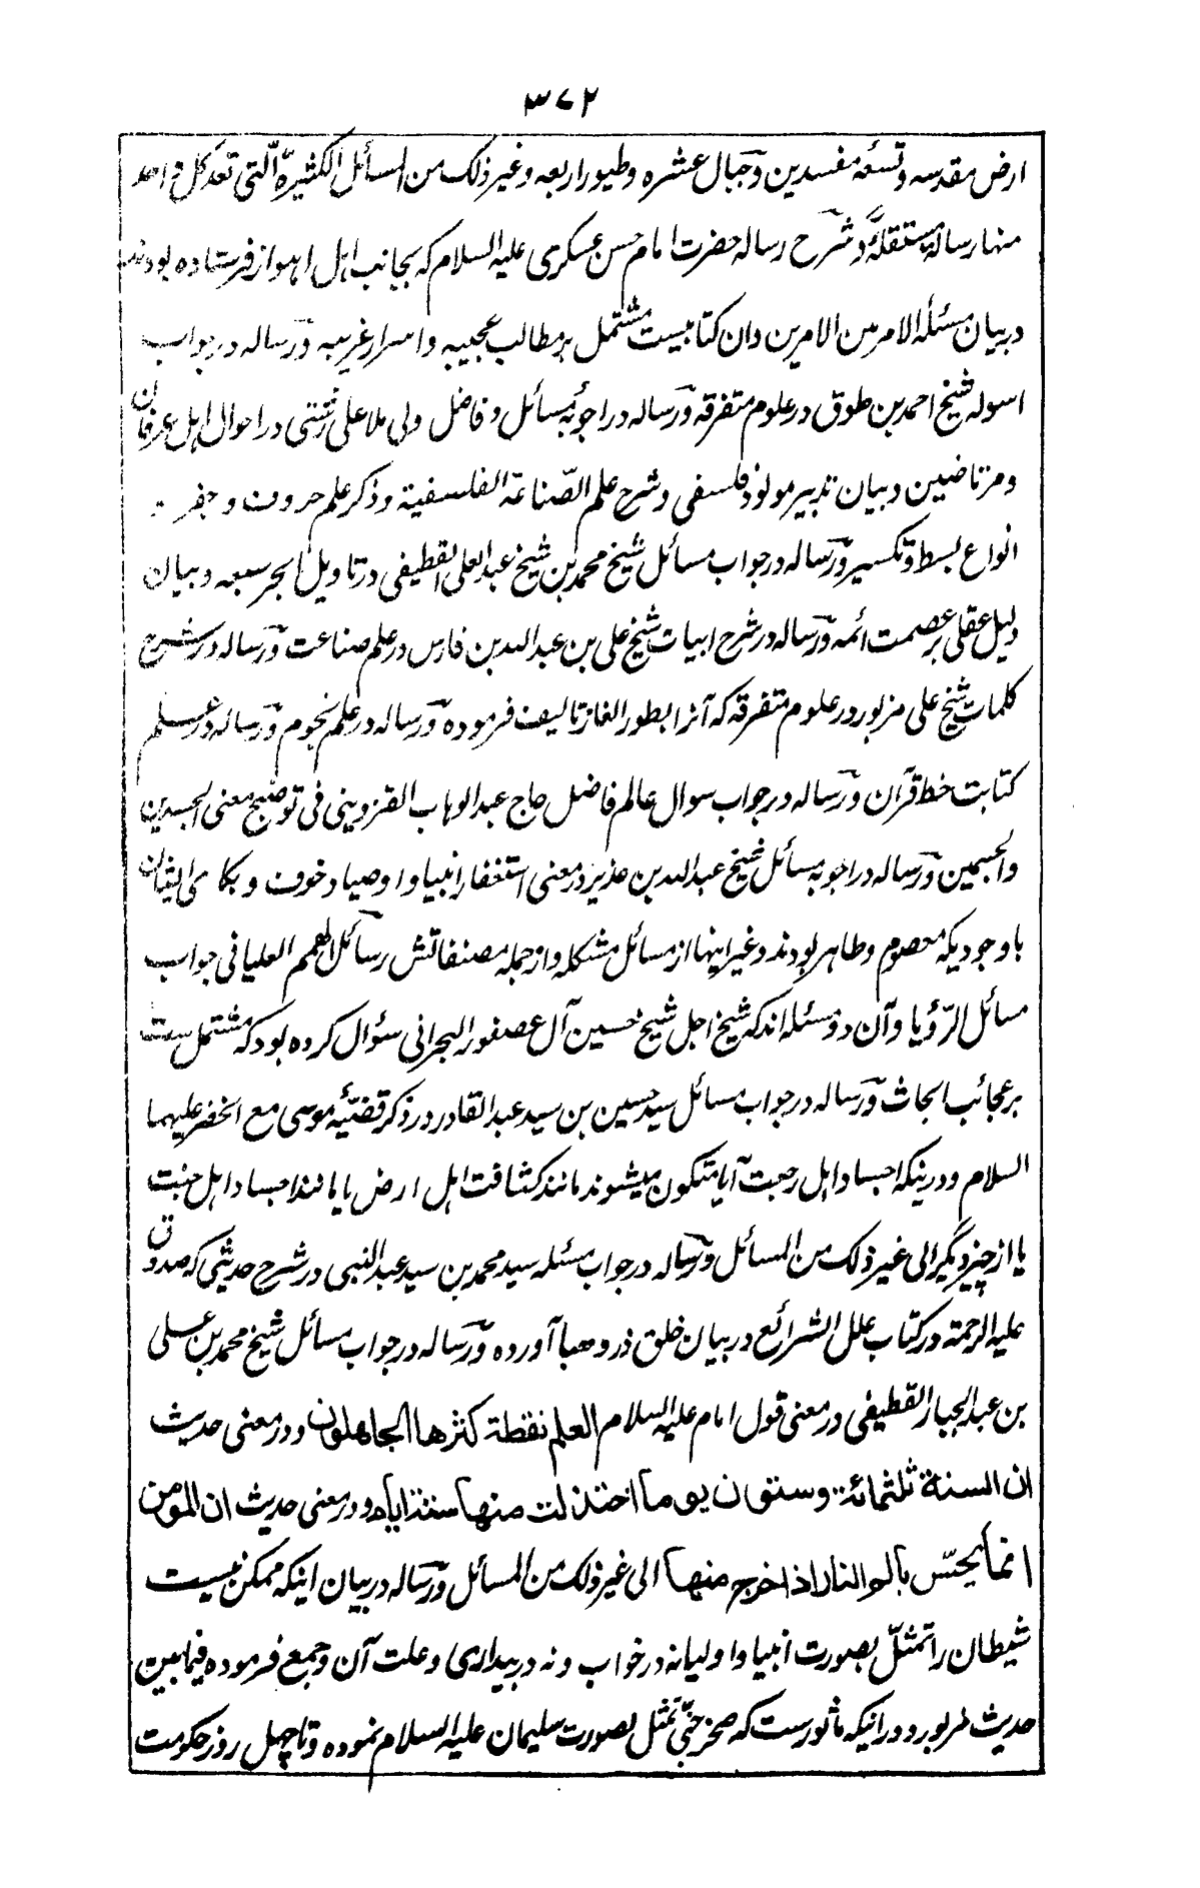 ۳۷۲
ارض مقدسه و تسعه مفسدین و جبال عشره و طیور اربعه و غیر ذلک من المسائل الکثیرة الّتی تعدّ کل واحد
منها رسالة مستقلةً و شرح رساله حضرت امام حسن عسکری علیه السلام که بجانب اهل اهواز فرستاده بودند
در بیان مسئله الامر بین الامرین و ان کتابیست مشتمل بر مطالب عجیبه و اسرار غریبه و رساله در جواب
اسوله شیخ احمد بن طوق در علوم متفرقه و رساله در اجوبۀ مسائل و فاضل ولی ملا علی رشتی در احوال اهل عرفان
و مرتاضین و بیان تدبیر مولود فلسفی و شرح علم الصّناعة الفلسفیة و ذکر علم حروف و جفر
انواع بسط و تکسیر و رساله در جواب مسائل شیخ محمد بن شیخ عبد العلی القطیفی در تاویل ابحر سبعه و بیان
دلیل عقلی بر عصمت ائمه و رساله در شرح ابیات شیخ علی بن عبد الله بن فارس در علم صناعت و رساله در شرح
کلمات شیخ علی مزبور در علوم متفرقه که آنرا بطور الغاز تالیف فرموده و رساله در علم نجوم و رساله در علم
کتابت خط قرآن و رساله در جواب سوال عالم فاضل حاج عبد الوهاب القزوینی فی توضیح معنی الجسدین
والجسمین و رساله در اجوبه مسائل شیخ عبد الله بن غدیر در معنی استغفار انبیا و اوصیا و خوف و بکای ایشان
با وجودیکه معصوم و طاهر بودند و غیر اینها از مسائل مشکله و از جمله مصنفاتش رسائل الهمم العلیا فی جواب
مسائل الرّؤیا و آن دو مسئله اند که شیخ اجل شیخ حسین آل عصفور البحرانی سؤال کرده بود که مشتمل ست
بر عجائب ابحاث و رساله در جواب مسائل سید حسین بن سید عبد القادر در ذکر قضیّه موسی مع الخضر علیهما
السلام و در اینکه اجساد اهل رجعت آیا متکون میشوند مانند کثافت اهل ارض یا مانند اجساد اهل جنت
یا از چیز دیگر الی غیر ذلک من المسائل و رساله در جواب مسئله سید محمد بن سید عبد النبی در شرح حدیثی که صدوق
علیه الرحمة در کتاب علل الشرائع در بیان خلق ذر و هبا آورده و رساله در جواب مسائل شیخ محمد بن علی
بن عبد الجبار القطیفی در معنی قول امام علیه السلام العلم نقطة کثرها الجاهلون و در معنی حدیث
ان السنة ثلثمائة وستون یوما اختزلت منها ستة ایام و در معنی حدیث ان المؤمن
انما یحسّ بالم النار اذا خرج منها الی غیر ذلک من المسائل و رساله در بیان اینکه ممکن نیست
شیطان را تمثلّ بصورت انبیا و اولیا نه در خواب و نه در بیداری و علت آن و جمع فرموده فیما بین
حدیث مزبور و در اینکه ماثور ست که صخر جنّی تمثل بصورت سلیمان علیه السلام نموده و تا چهل روز حکومت